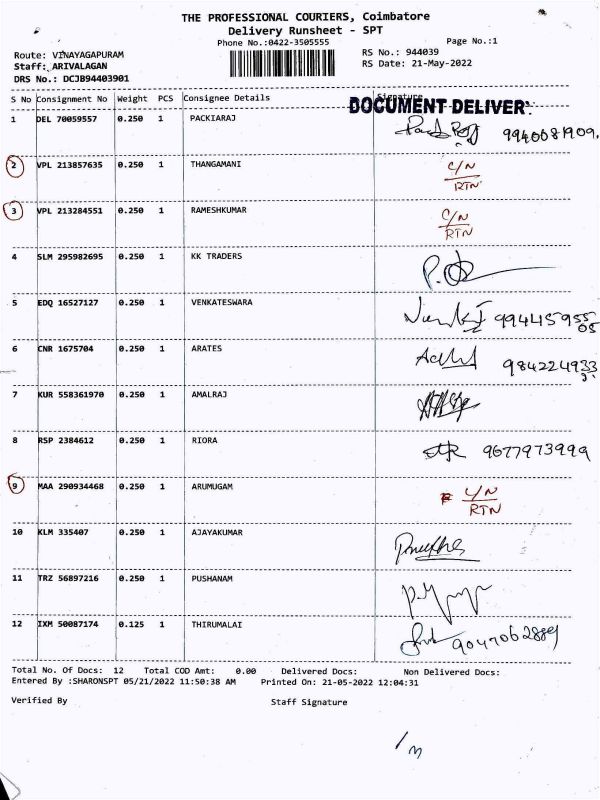 THE PROFESSIONAL COURIERS, Coimbatore
Delivery Runsheet - SPT
Phone No.:0422-3505555
Page No.:1
Route: VINAYAGAPURAM
RS No.: 944039
Staff: ARIVALAGAN
RS Date: 21-May-2022
DRS No.: DCJB94403901
S No Consignment No Weight PCS Consignee Details Signature
DOCUMENT DELIVER
1 DEL 70059557 0.250 1 PACKIARAJ
2 VPL 213857635 0.250 1 THANGAMANI C/N
RTN
3 VPL 213284551 0.250 1 RAMESHKUMAR C/N
RTN
4 SLM 295982695 0.250 1 KK TRADERS
5 EDQ 16527127 0.250 1 VENKATESWARA
6 CNR 1675704 0.250 1 ARATES
7 KUR 558361970 0.250 1 AMALRAJ
8 RSP 2384612 0.250 1 RIORA 9677973999
9 MAA 290934468 0.250 1 ARUMUGAM C/N
RTN
10 KLM 335407 0.250 1 AJAYAKUMAR
11 TRZ 56897216 0.250 1 PUSHANAM
12 IXM 50087174 0.125 1 THIRUMALAI
Total No. Of Docs: 12 Total COD Amt: 0.00 Delivered Docs: Non Delivered Docs:
Entered By :SHARONSPT 05/21/2022 11:50:38 AM Printed On: 21-05-2022 12:04:31
Verified By Staff Signature